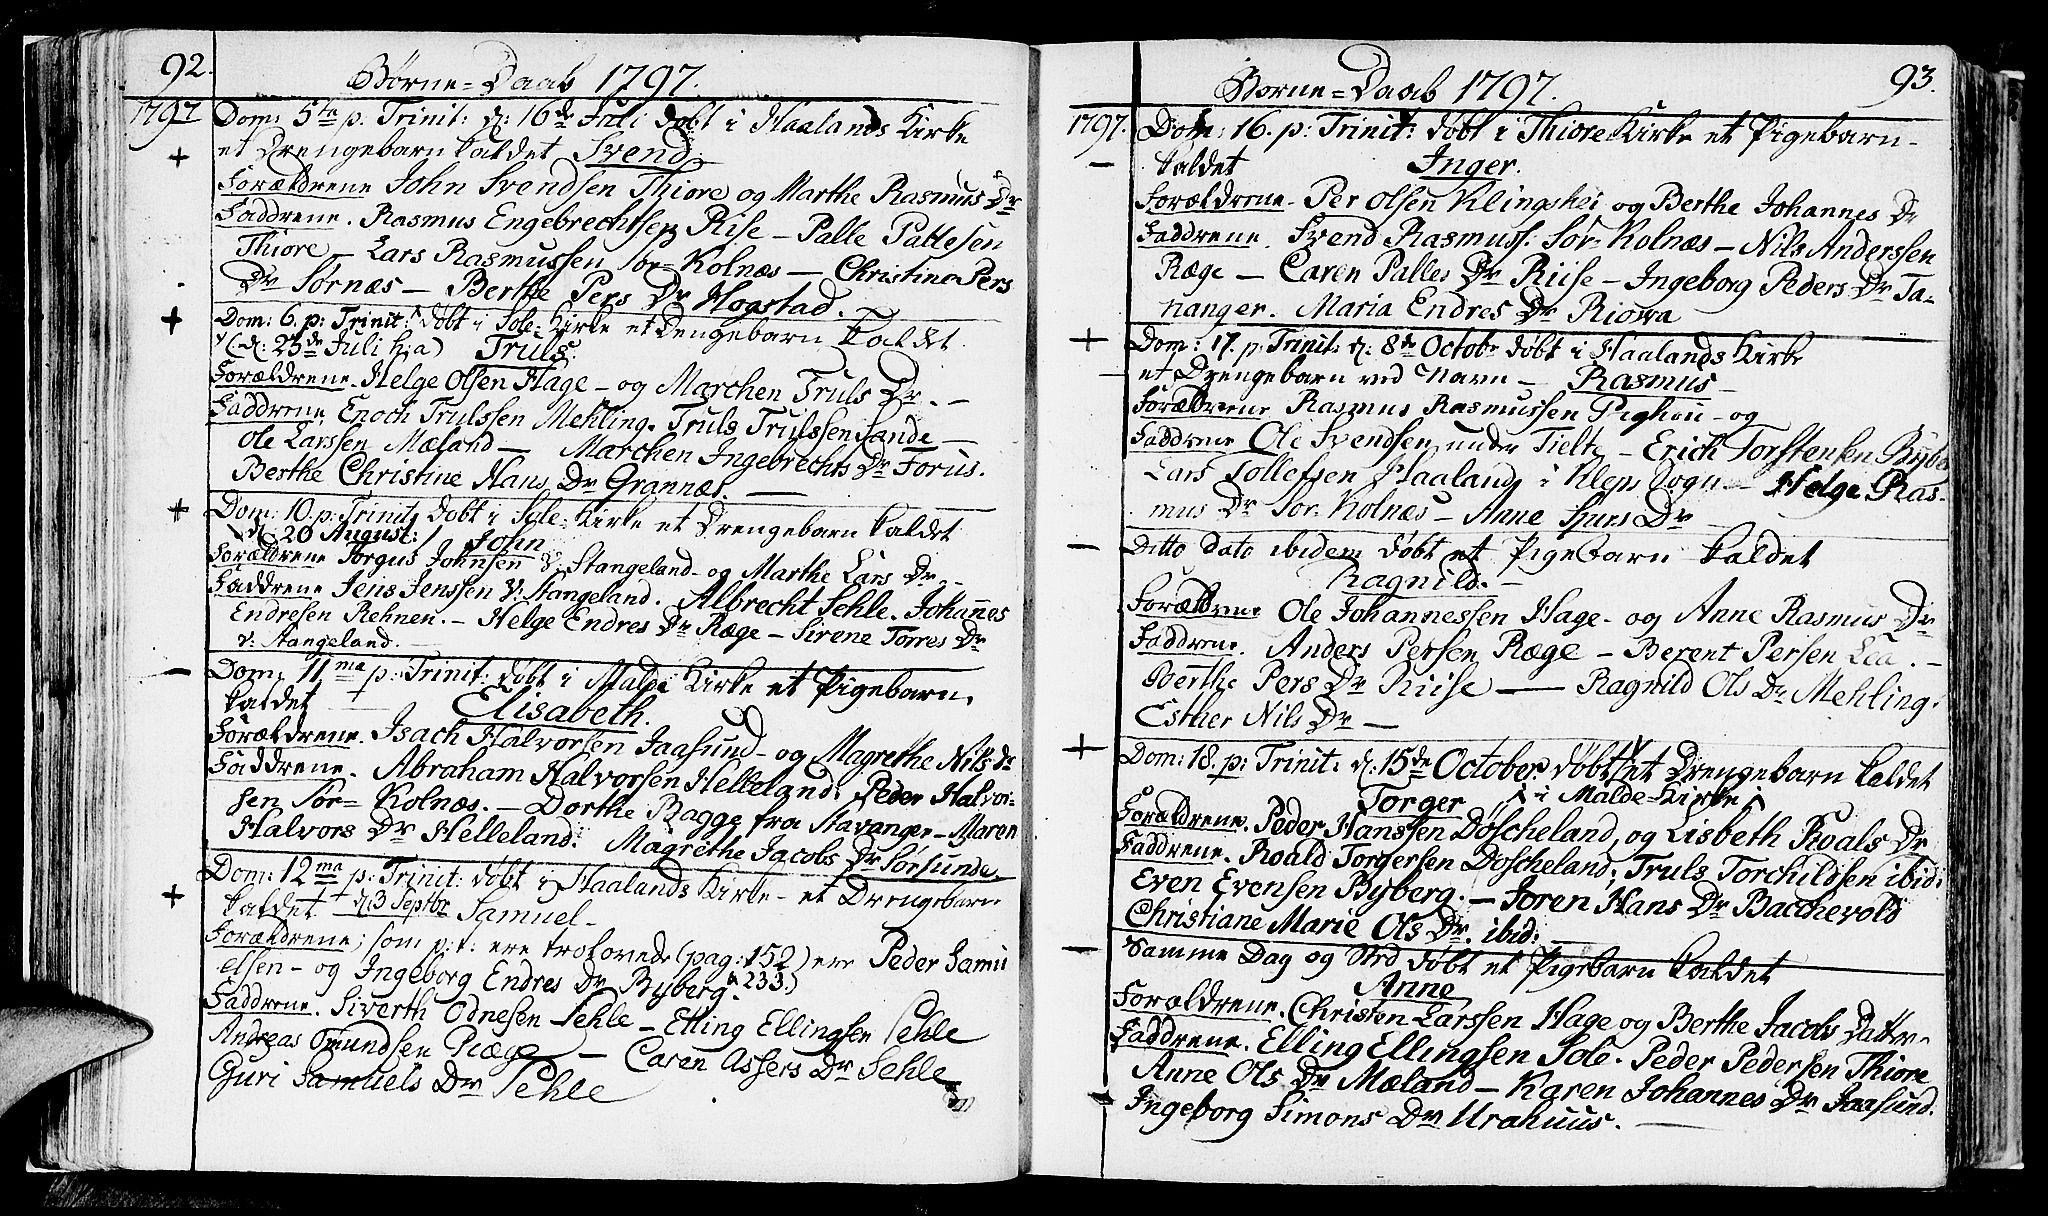 92.
Børne=Daab 1797.
1797
Dom: 5te p: Trinit: d: 16de Juli døbt i Haalands Kirke
+
et Drengebarn kaldet Svend
Forældrene John Svendsen Thiore og Marthe Rasmus Dr
Faddrene. Rasmus Engebrechtsen Rise — Palle Pallesen
Thiore — Lars Rasmussen Sør=Kolnæs — Christine Pers
Dr Sørnæs — Berthe Pers Dr Hogstad.
+
Dom: 6. p: Trinit: døbt i Sole=Kirke et Drengebarn kaldet
(d: 23de Juli h:a) Truls.
Forældrene. Helge Olsen Hage — og Marchen Truls Dr. —
Faddrene Enoch Trulssen Mehling. Truls Trulssen Sande —
Ole Larssen Mæland — Marchen Ingebrechts Dr Forus.
Berthe Christine Hans Dr Grannæs. —
+
Dom: 10. p: Trinit: døbt i Sole=Kirke et Drengebarn kaldet
d: 20 August: John
Forældrene Torgus Johnsen v: Stangeland — og Marthe Lars Dr. —
Faddrene Jens Jenssen v: Stangeland. Albrecht Sehle. Johannes
Endresen Rehnen. — Helge Endres Dr Ræge — Sirene Torres Dr
v: Stangeland. —
—
Dom: 11ma p: Trinit: døbt i Malde Kirke et Pigebarn.
kaldet Elisabeth.
Forældrene. Isach Halvorsen Jaasund — og Magrethe Nils Dr
Faddrene. Abraham Halvorsen Helleland. Peder Halvor-
sen Sør=Kolnæs. — Dorthe Bagge fra Stavanger — Maren
Halvors Dr Helleland: Magrethe Jacobs Dr Sørsunde.
Dom: 12ma p: Trinit: døbt i Haalands Kirke — et Drengebarn
+
kaldet d:3 Septbr Samuel —
Forældrene; som p:t: ere trolovede (pag: 152) ere Peder Samu
elsen — og Ingeborg Endres Dr Byberg. & 233.)
Faddrene. Siverth Odnesen Sehle — Elling Ellingsen Sehle
Andreas Omundsen Ræge — Caren Assers Dr Sehle
Guri Samuels Dr Sehle
93.
Børne=Daab 1797.
1797.
Dom: 16. p: Trinit: døbt i Thiore Kirke et Pigebarn —
—
kaldet Inger.
Forældrene — Per Olsen Klingshei og Berthe Johannes Dr
Faddrene. Svend Rasmuss. Sør=Kolnæs — Nils Anderssen
Ræge — Caren Palles Dr Riise — Ingeborg Peders Dr Ta-
nanger. Maria Endres Dr Riowa
+
Dom: 17. p: Trinit: d: 8de Octobr døbt i Haalands Kirke
et Drengebarn ved Navn — Rasmus —
Forældrene Rasmus Rasmussen Pighou — og
Faddrene Ole Svendsen under Tielte — Erich Torstensen Bybe
Lars Tollefsen Haaland i Kleps Sogn — Helge Ras-
mus Dr Sør=Kolnæs — Anne Siurs Dr
—
Ditto dato ibidem døbt et Pigebarn kaldet
Ragnild. —
Forældrene Ole Johannessen Hage — og Anne Rasmus Dr
Faddrene. Anders Persen Ræge — Berent Persen Lea. —
Berthe Pers Dr Riise — Ragnild Ols Dr Mehling.
Esther Nils Dr —
+
Dom: 18. p: Trinit: d: 15de October. døbt et Drengebarn kaldet
Torger i Malde=Kirke
Forældrene. Peder Hanssen Døscheland, og Lisbeth Roals Dr
Faddrene. Roald Torgersen Døscheland; Truls Torchildsen ibid:
Even Evensen Byberg. — Joren Hans Dr Bacchevold
Christiane Marie Ols Dr. ibid:
—
Samme Dag og Sted døbt et Pigebarn kaldet
Anne
Forældrene. Christen Larssen Hage og Berthe Jacobs Datter —
Faddrene. Elling Ellingsen Sole. Peder Pedersen Thiore
Anne Ols Dr Mæland — Karen Johannes Dr Jaasund.
Ingeborg Simons Dr Urahuus. —